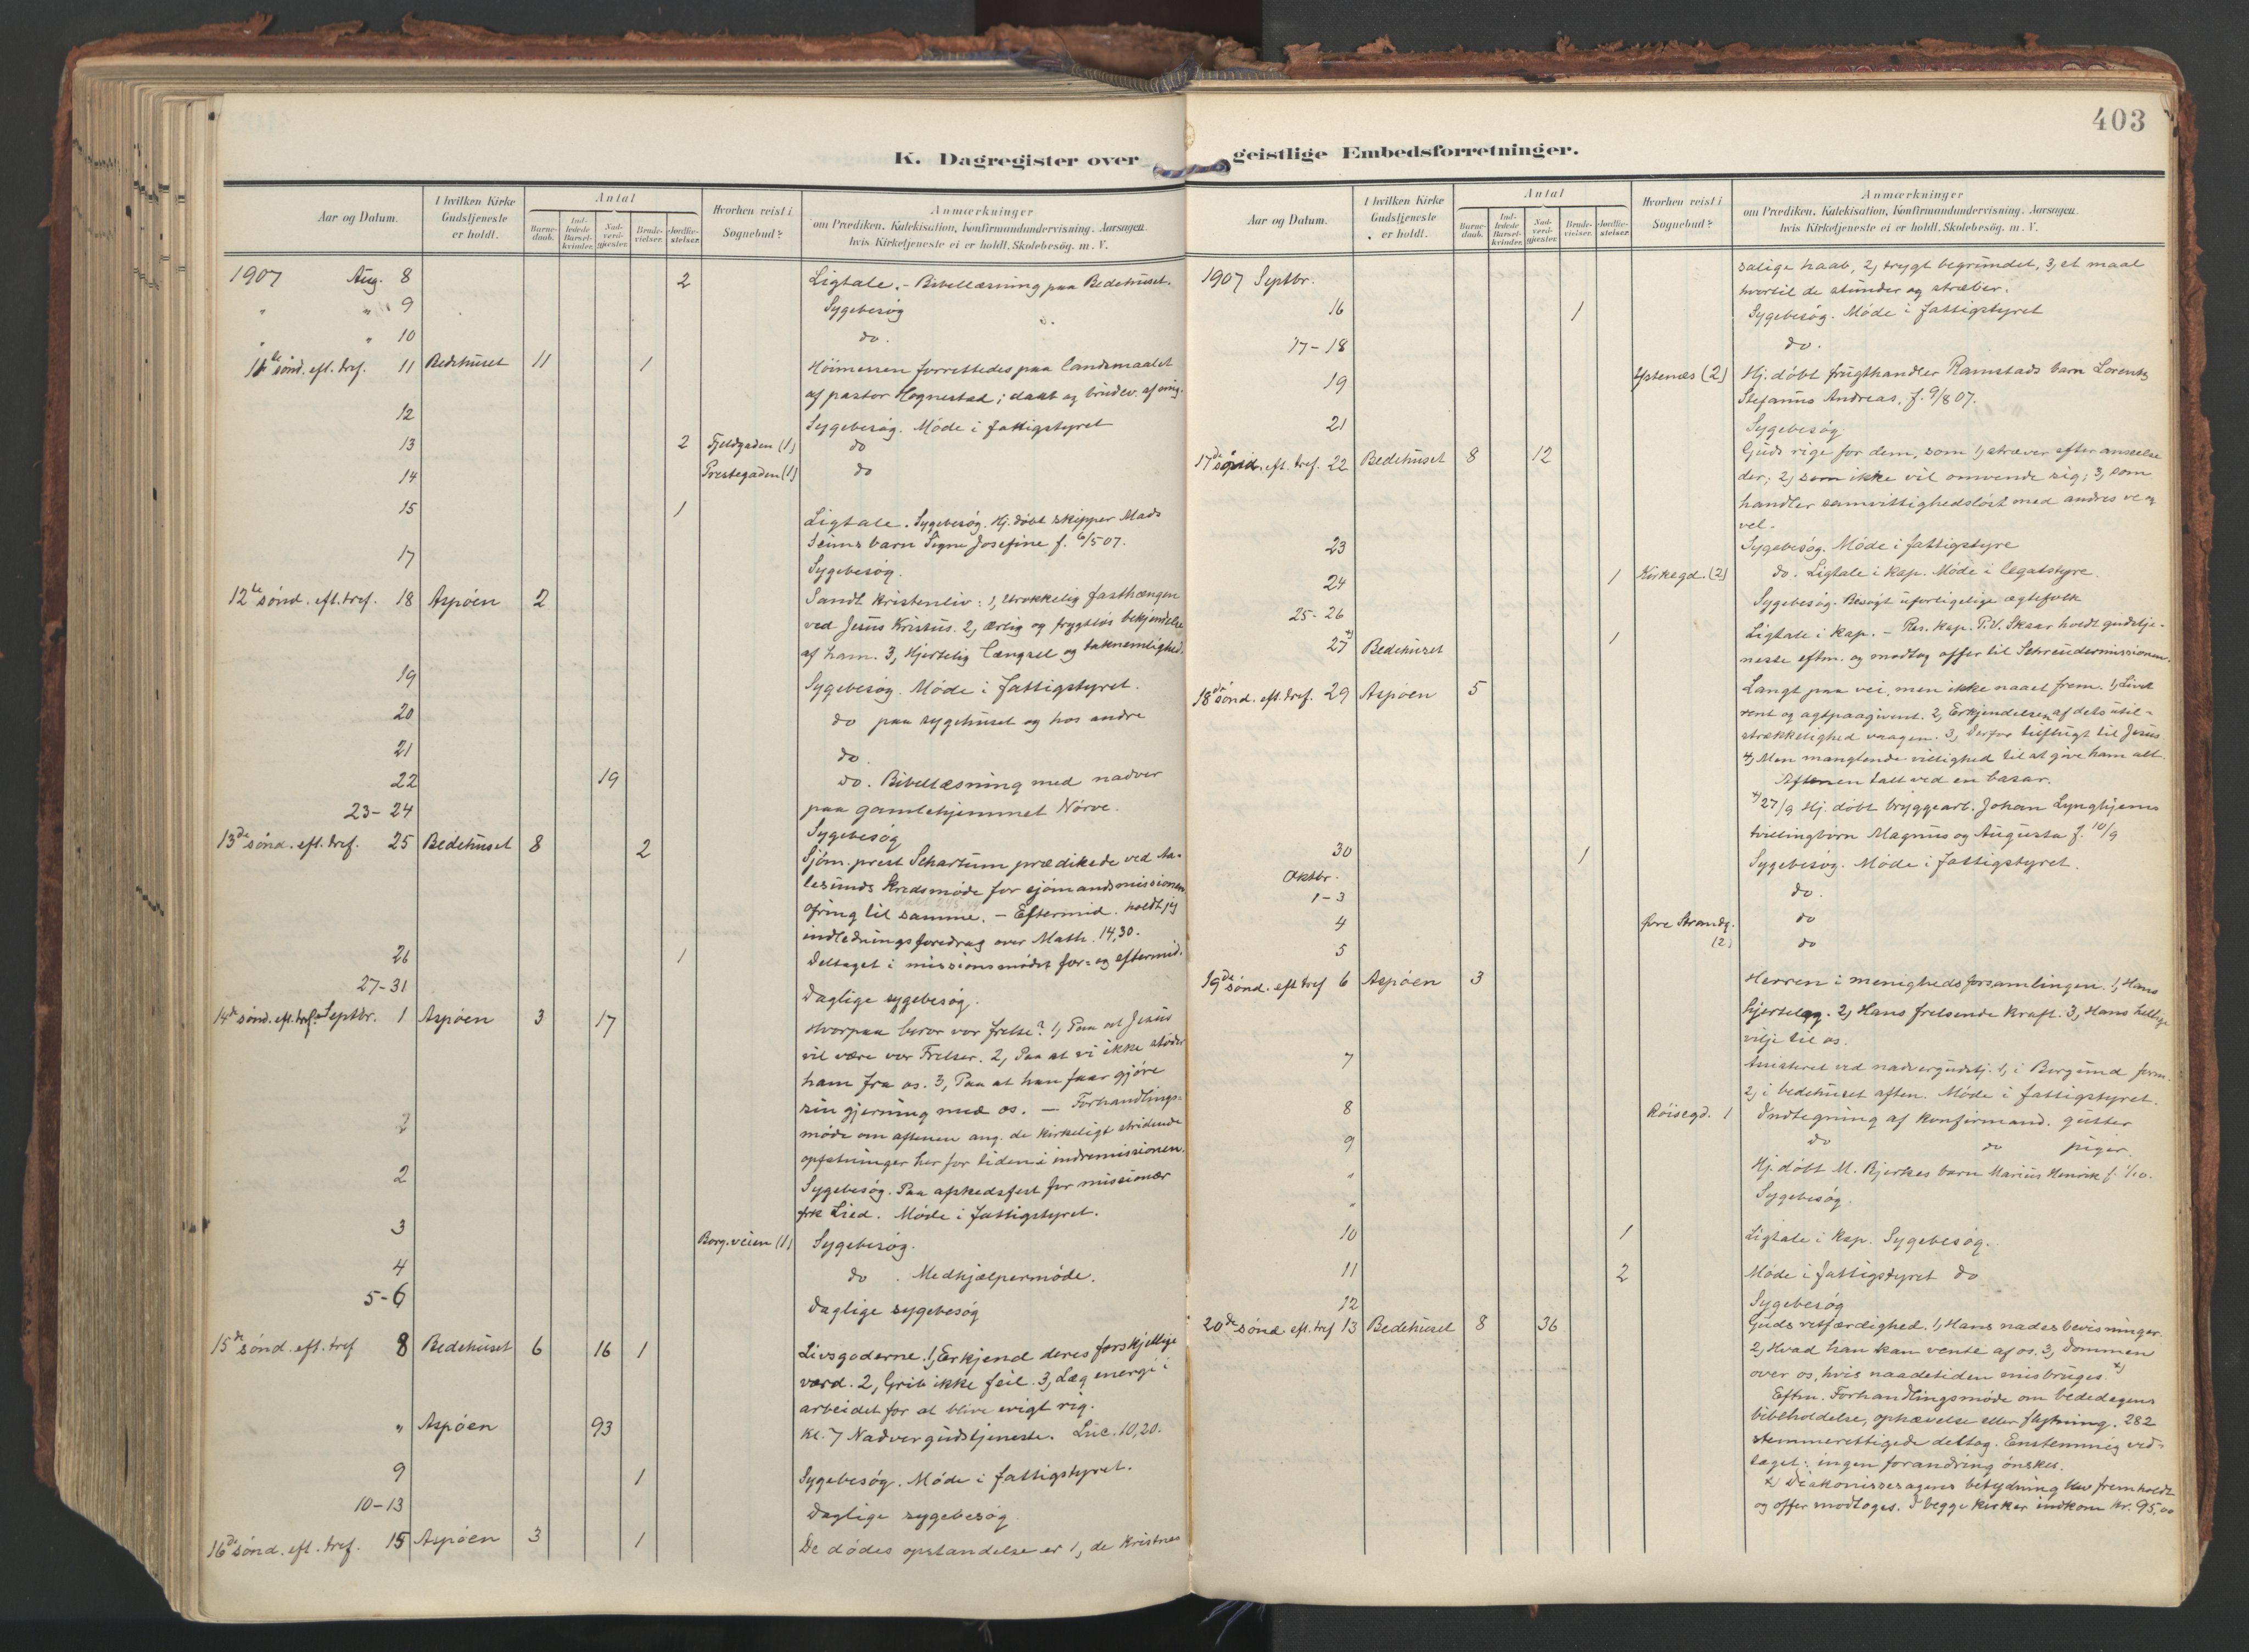 403
K. Dagregister over geistlige Embedsforretninger.
Aar og Datum.
I hvilken Kirke Gudstjeneste er holdt.
Antal
Barnedaab.
Indledede Barselkvinder.
Nadverdgjester.
Brudevielser.
Jordfæstelser.
Hvorhen reist i Sognebud?
Anmærkninger
om Prædiken, Katekisation, Konfirmandundervisning. Aarsagen,
hvis Kirketjeneste ei er holdt. Skolebesøg. m. V.
1907 Aug. 8 2 Ligtale. - Bibellæsning paa Bedehuset.
" " 9 Sygebesøg
" " 10 do.
11te sønd. eft. tref. 11 Bedehuset 11 1 Höimessen forrettedes paa landsmaalet
af pastor Hognestad; daab og brudev. af mig.
12 Sygebesøg. Møde i fattigstyret
13 2 Fjeldgaden (1) do
14 Prestegaden (1) do
15 1 Ligtale. Sygebesøg. Hj. døbt skipper Mads
Seims barn Signe Josefine f. 6/5 07.
17 Sygebesøg.
12te sønd. eft. tref. 18 Aspøen 2 Sandt kristenliv: 1, Urokkelig fasthængen
ved Jesus Kristus. 2, ærlig og frygtløs bekjendelse
af ham. 3, Hjertelig længsel og taknemlighed.
19 Sygebesøg. Møde i fattigstyret.
20 do paa sygehuset og hos andre
21 do.
22 19 do. Bibellæsning med nadver
paa gamlehjemmet Nørve.
23-24 Sygebesøg
13de sønd. eft. tref. 25 Bedehuset 8 2 Sjøm. prest Schartum prædikede ved Aa-
lesunds Kredsmøde for sjømandsmissionen
ofring til samme. - Eftermid. holdt jeg
indledningsforedrag over Math. 14,30.
26 1 Deltaget i missionsmødet for- og eftermid.
27-31 Daglige sygebesøg.
14de sønd. eft. tref. Septbr. 1 Aspøen 3 17 Hvorpaa beror vor frelse? 1, Paa at Jesus
vil være vor Frelser. 2, Paa at vi ikke støder
ham fra os. 3, Paa at han faar gjøre
sin gjerning med os. - Forhandlings-
2 møde om aftenen ang. de kirkeligt stridende
opfatninger her for tiden i indremissionen.
2 Sygebesøg. Paa afskedsfest for missionær
frk Lied. Møde i fattigstyret.
3 Borg.veien (1) Sygebesøg.
4 do. Medhjælpermøde.
5-6 Daglige sygebesøg
15de sønd. eft. tref 8 Bedehuset 6 16 1 Livsgoderne. 1, Erkjend deres forskjellige
værd. 2, Grib ikke feil. 3, Læg energi i
arbeidet for at blive evigt rig.
" Aspøen 93 Kl. 7 Nadvergudstjeneste. Luc. 10,20.
9 1 Sygebesøg. Møde i fattigstyret.
10-13 Daglige sygebesøg
16de sønd. eft. tref. 15 Aspøen 3 1 De dødes opstandelse er 1, de kristnes
Aar og Datum.
I hvilken Kirke Gudstjeneste er holdt.
Antal
Barnedaab.
Indledede Barselkvinder.
Nadverdgjester.
Brudevielser.
Jordfæstelser.
Hvorhen reist i Sognebud?
Anmærkninger
om Prædiken, Katekisation, Konfirmandundervisning. Aarsagen,
hvis Kirketjeneste ei er holdt. Skolebesøg. m. V.
1907 Septbr. salige haab, 2, trygt begrundet, 3, et maal
hvortil de stunder og stræber.
16 1 Sygebesøg. Møde i fattigstyret
17-18 do.
19 Ystenæs (2) Hj. døbt frugthandler Ramstads barn Lorents
Stefanus Andreas, f. 9/8 07.
21 Sygebesøg
17de sønd. eft. tref. 22 Bedehuset 8 12 Guds rige for dem, som 1, stræver efter anseelse
der; 2, som ikke vil omvende sig; 3, som
handler samvittighedsløst med andres ve og
vel.
23 Sygebesøg. Møde i fattigstyre
24 1 Kirkegd. (2) do. Ligtale i kap. Møde i legatstyre.
25-26 Sygebesøg. Besøgt uforligelige ægtefolk
27 x) Bedehuset 1 Ligtale i kap. - Res. kap. P.V. Skaar holdt gudstje-
neste eftm. og modtog offer til Schreudermissionen.
18de sønd. eft. tref. 29 Aspøen 5 Langt paa vei, men ikke naaet frem. 1, Livet
rent og agtpaagivent. 2, Erkjendelsen af dets util-
strækkelighed vaagen. 3, Derfor tilflugt til Jesus
4, Men manglende villighed til at give ham alt.
Aftenen talt ved en basar.
x) 27/9 Hj. døbt bryggearb. Johan Lynghjems
tvillingbørn Magnus og Augusta f. 10/9
30 1 Sygebesøg. Møde i fattigstyret.
Oktbr.
1-3 do.
4 Øvre Strandg. (2) do
5 do
19de sønd. eft tref 6 Aspøen 3 Herren i menighedsforsamlingen. 1, Hans
hjertelag. 2, Hans frelsende kraft. 3, Hans hellige
vilje til os.
7 Assisteret ved nadvergudstj. 1, i Borgund form.
2, i bedehuset aften. Møde i fattigstyret.
8 Røisegd. 1 Indtegning af konfirmand. gutter
9 do do piger.
" Hj. døbt M. Bjerkes barn Marius Henrik f. 1/10.
" Sygebesøg.
10 1 Ligtale i kap. Sygebesøg.
11 2 Møde i fattigstyret do
12 Sygebesøg
20de sønd eft. tref 13 Bedehuset 8 36 Guds retfærdighed. 1, Hans nades bevisninger.
2, Hvad han kan vente af os. 3, Dommen
over os, hvis naadetiden misbruges. x)
Eftm. Forhandlingsmøde om bededagens
bibeholdelse, ophævelse eller flytning. 282
stemmerettigede deltog. Enstemmig ved-
taget: ingen forandring ønskes.
x) Diakonissesagens betydning blev fremholdt
og offer modtoges. I begge kirker indkom kr. 95,00